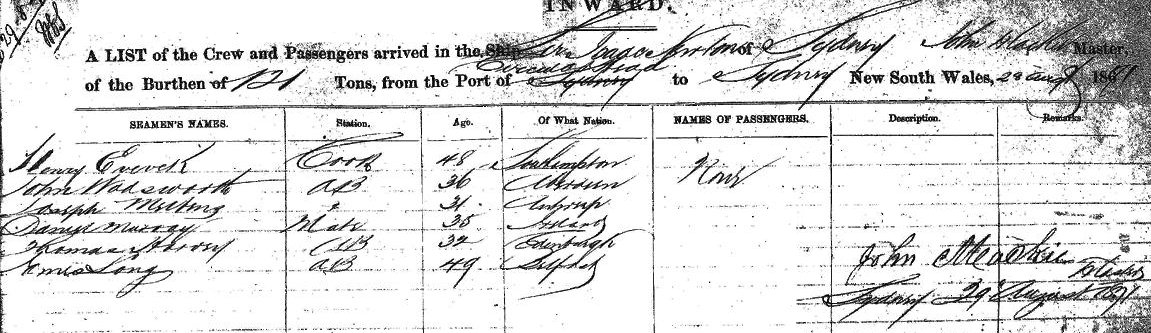 INWARD.
29.8.
A LIST of the Crew and Passengers arrived in the Ship Isaac Newton of Sydney John Mackie Master,
of the Burthen of 121 Tons, from the Port of Sydney to Sydney New South Wales, 29 Augt 1871
SEAMEN'S NAMES. Station. Age. Of What Nation. NAMES OF PASSENGERS. Description. Remarks.
Henry Cook 48 Southampton None
John Wadsworth AB 36 Aberdeen
Joseph 31
Daniel Murray Mate 35 Ireland
Thomas AB 32 Edinburgh
James Long AB 49 Belfast
John Mackie Master
Sydney 29 August 1871